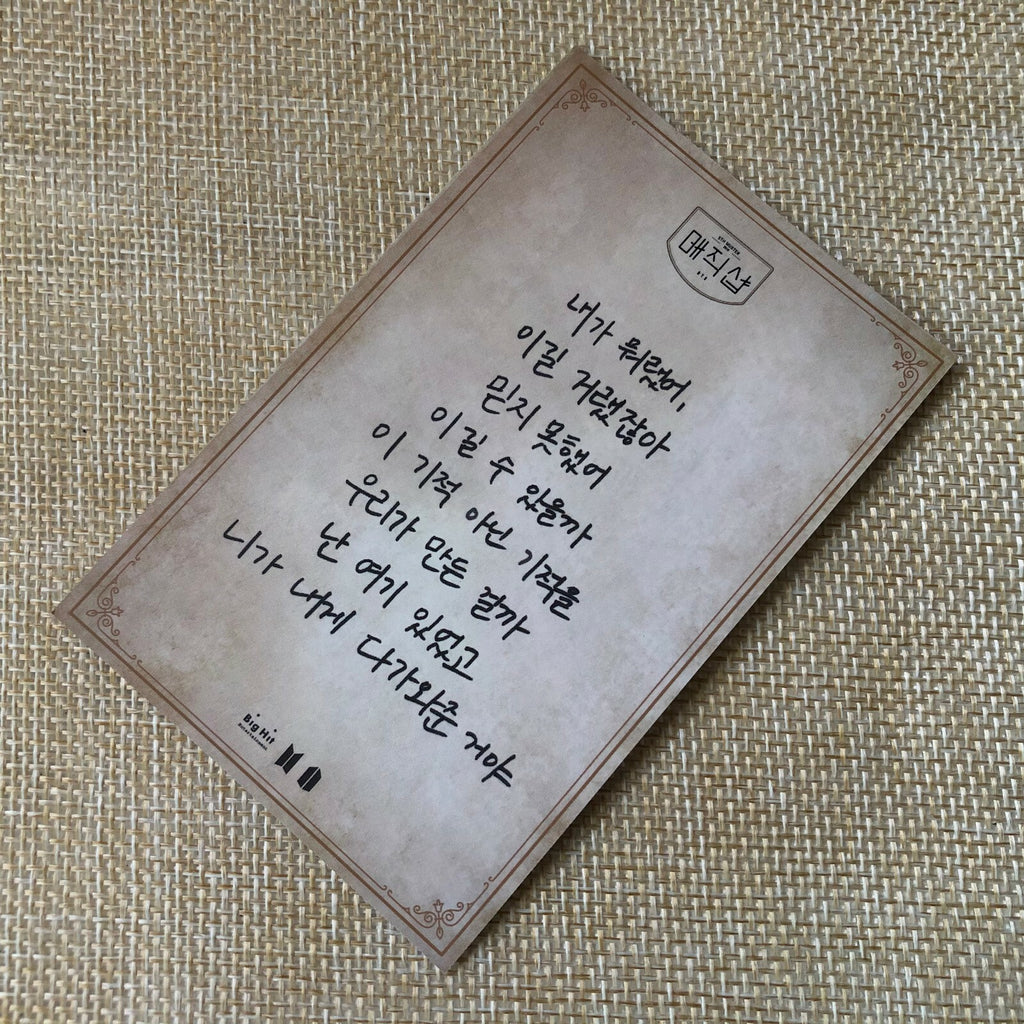 5TH MUSTER
BTS
매직샵
BTS
내가 뭐랬어,
이길 거랬잖아
믿지 못했어
이길 수 있을까
이 기적 아닌 기적을
우리가 만든 걸까
난 여기 있었고
니가 내게 다가와준 거야
Big Hit
Entertainment